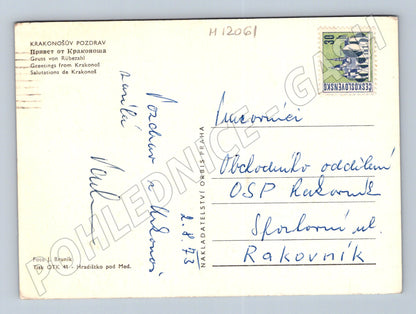 H 12061
KRAKONOŠŮV POZDRAV
Привет от Краконоша
Gruss von Rübezahl
Greetings from Krakonoš
Salutations de Krakonoš
30 h
ČESKOSLOVENSKO
Pozdrav z Krkonoš
zasílá
2.8.73
NAKLADATELSTVÍ ORBIS PRAHA
Obchodního oddělení
OSP Rakovník
Sportovní ul.
RAKOVNÍK
Tisk OTK, 41 - Hradištko pod Med.
POHLEDNICE - GASH